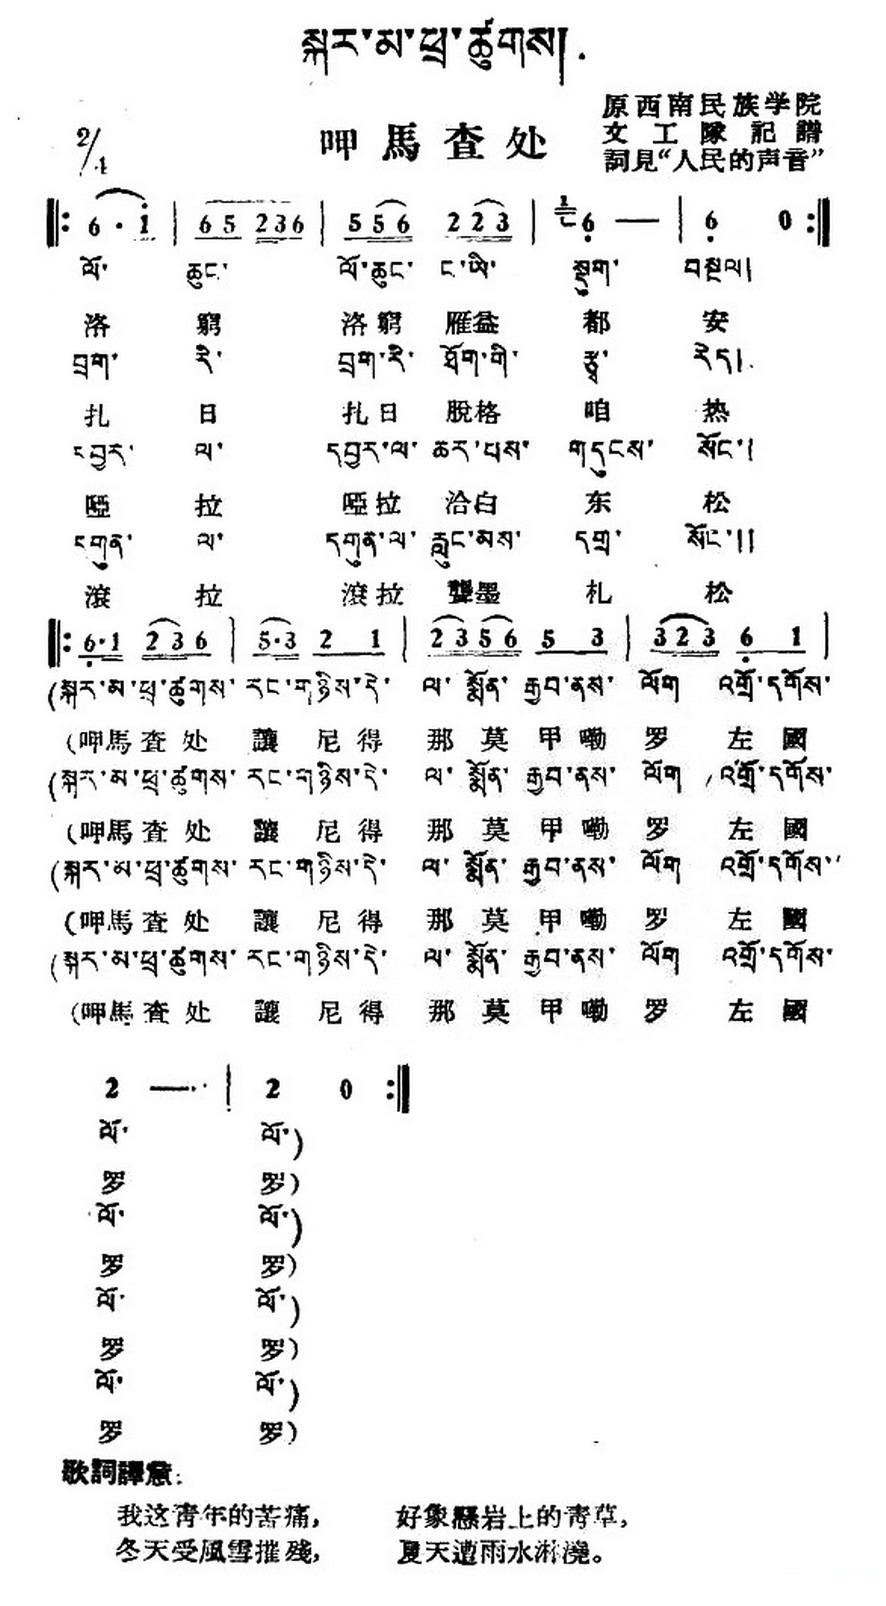 སྐར་མ་ཕྲ་ཚུགས།
2/4
呷馬查处
原西南民族学院
文工隊記譜
詞見“人民的声音”
6·1 | 65 236 | 556 223 | 6 — | 6 0 :‖
ལོ་ ཆུང་ ལོ་ཆུང་ ང་ཡི་ སྡུག་ བསྔལ།
洛 窮 洛窮 雁益 都 安
བྲག་ རི་ བྲག་རི་ ཐོག་གི་ རྩྭ་ རེད།
扎 日 扎日 脫格 咱 热
དབྱར་ ལ་ དབྱར་ལ་ ཆར་པས་ གདུངས་ སོང་།
啞 拉 啞拉 洽白 东 松
དགུན་ ལ་ དགུན་ལ་ རླུང་མས་ དགྲ་ སོང་།།
滾 拉 滾拉 龔墨 札 松
‖: 6·1 236 | 5·3 2 1 | 23 56 5 3 | 323 6 1 |
(སྐར་མ་ཕྲ་ཚུགས་ རང་གཉིས་དེ་ ལ་ སྨོན་ རྒྱབ་ནས་ ལོག འགྲོ་དགོས་
(呷馬查处 讓 尼得 那 莫 甲嘞 罗 左 國
(སྐར་མ་ཕྲ་ཚུགས་ རང་གཉིས་དེ་ ལ་ སྨོན་ རྒྱབ་ནས་ ལོག འགྲོ་དགོས་
(呷馬查处 讓 尼得 那 莫 甲嘞 罗 左 國
(སྐར་མ་ཕྲ་ཚུགས་ རང་གཉིས་དེ་ ལ་ སྨོན་ རྒྱབ་ནས་ ལོག འགྲོ་དགོས་
(呷馬查处 讓 尼得 那 莫 甲嘞 罗 左 國
(སྐར་མ་ཕྲ་ཚུགས་ རང་གཉིས་དེ་ ལ་ སྨོན་ རྒྱབ་ནས་ ལོག འགྲོ་དགོས་
(呷馬查处 讓 尼得 那 莫 甲嘞 罗 左 國
2 — | 2 0 :‖
ལོ་ ལོ་)
罗 罗)
ལོ་ ལོ་)
罗 罗)
ལོ་ ལོ་)
罗 罗)
ལོ་ ལོ་)
罗 罗)
歌詞譯意:
我这青年的苦痛, 好象懸岩上的青草,
冬天受風雪摧殘, 夏天遭雨水淋澆。